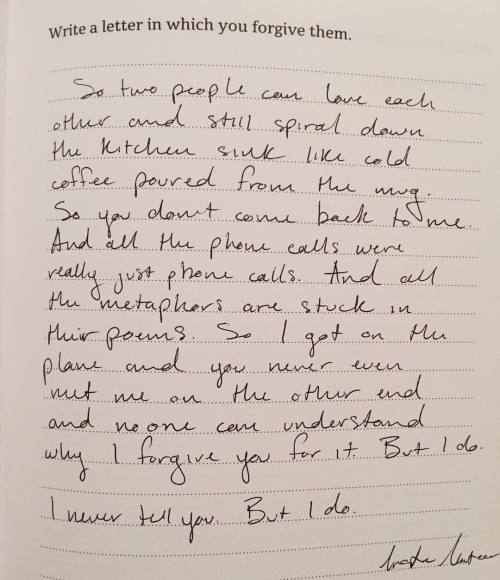 Write a letter in which you forgive them.
So two people can love each
other and still spiral down
the kitchen sink like cold
coffee poured from the mug.
So you don't come back to me.
And all the phone calls were
really just phone calls. And all
the metaphors are stuck in
their poems. So I got on the
plane and you never even
met me on the other end
and no one can understand
why I forgive you for it. But I do.
I never tell you. But I do.